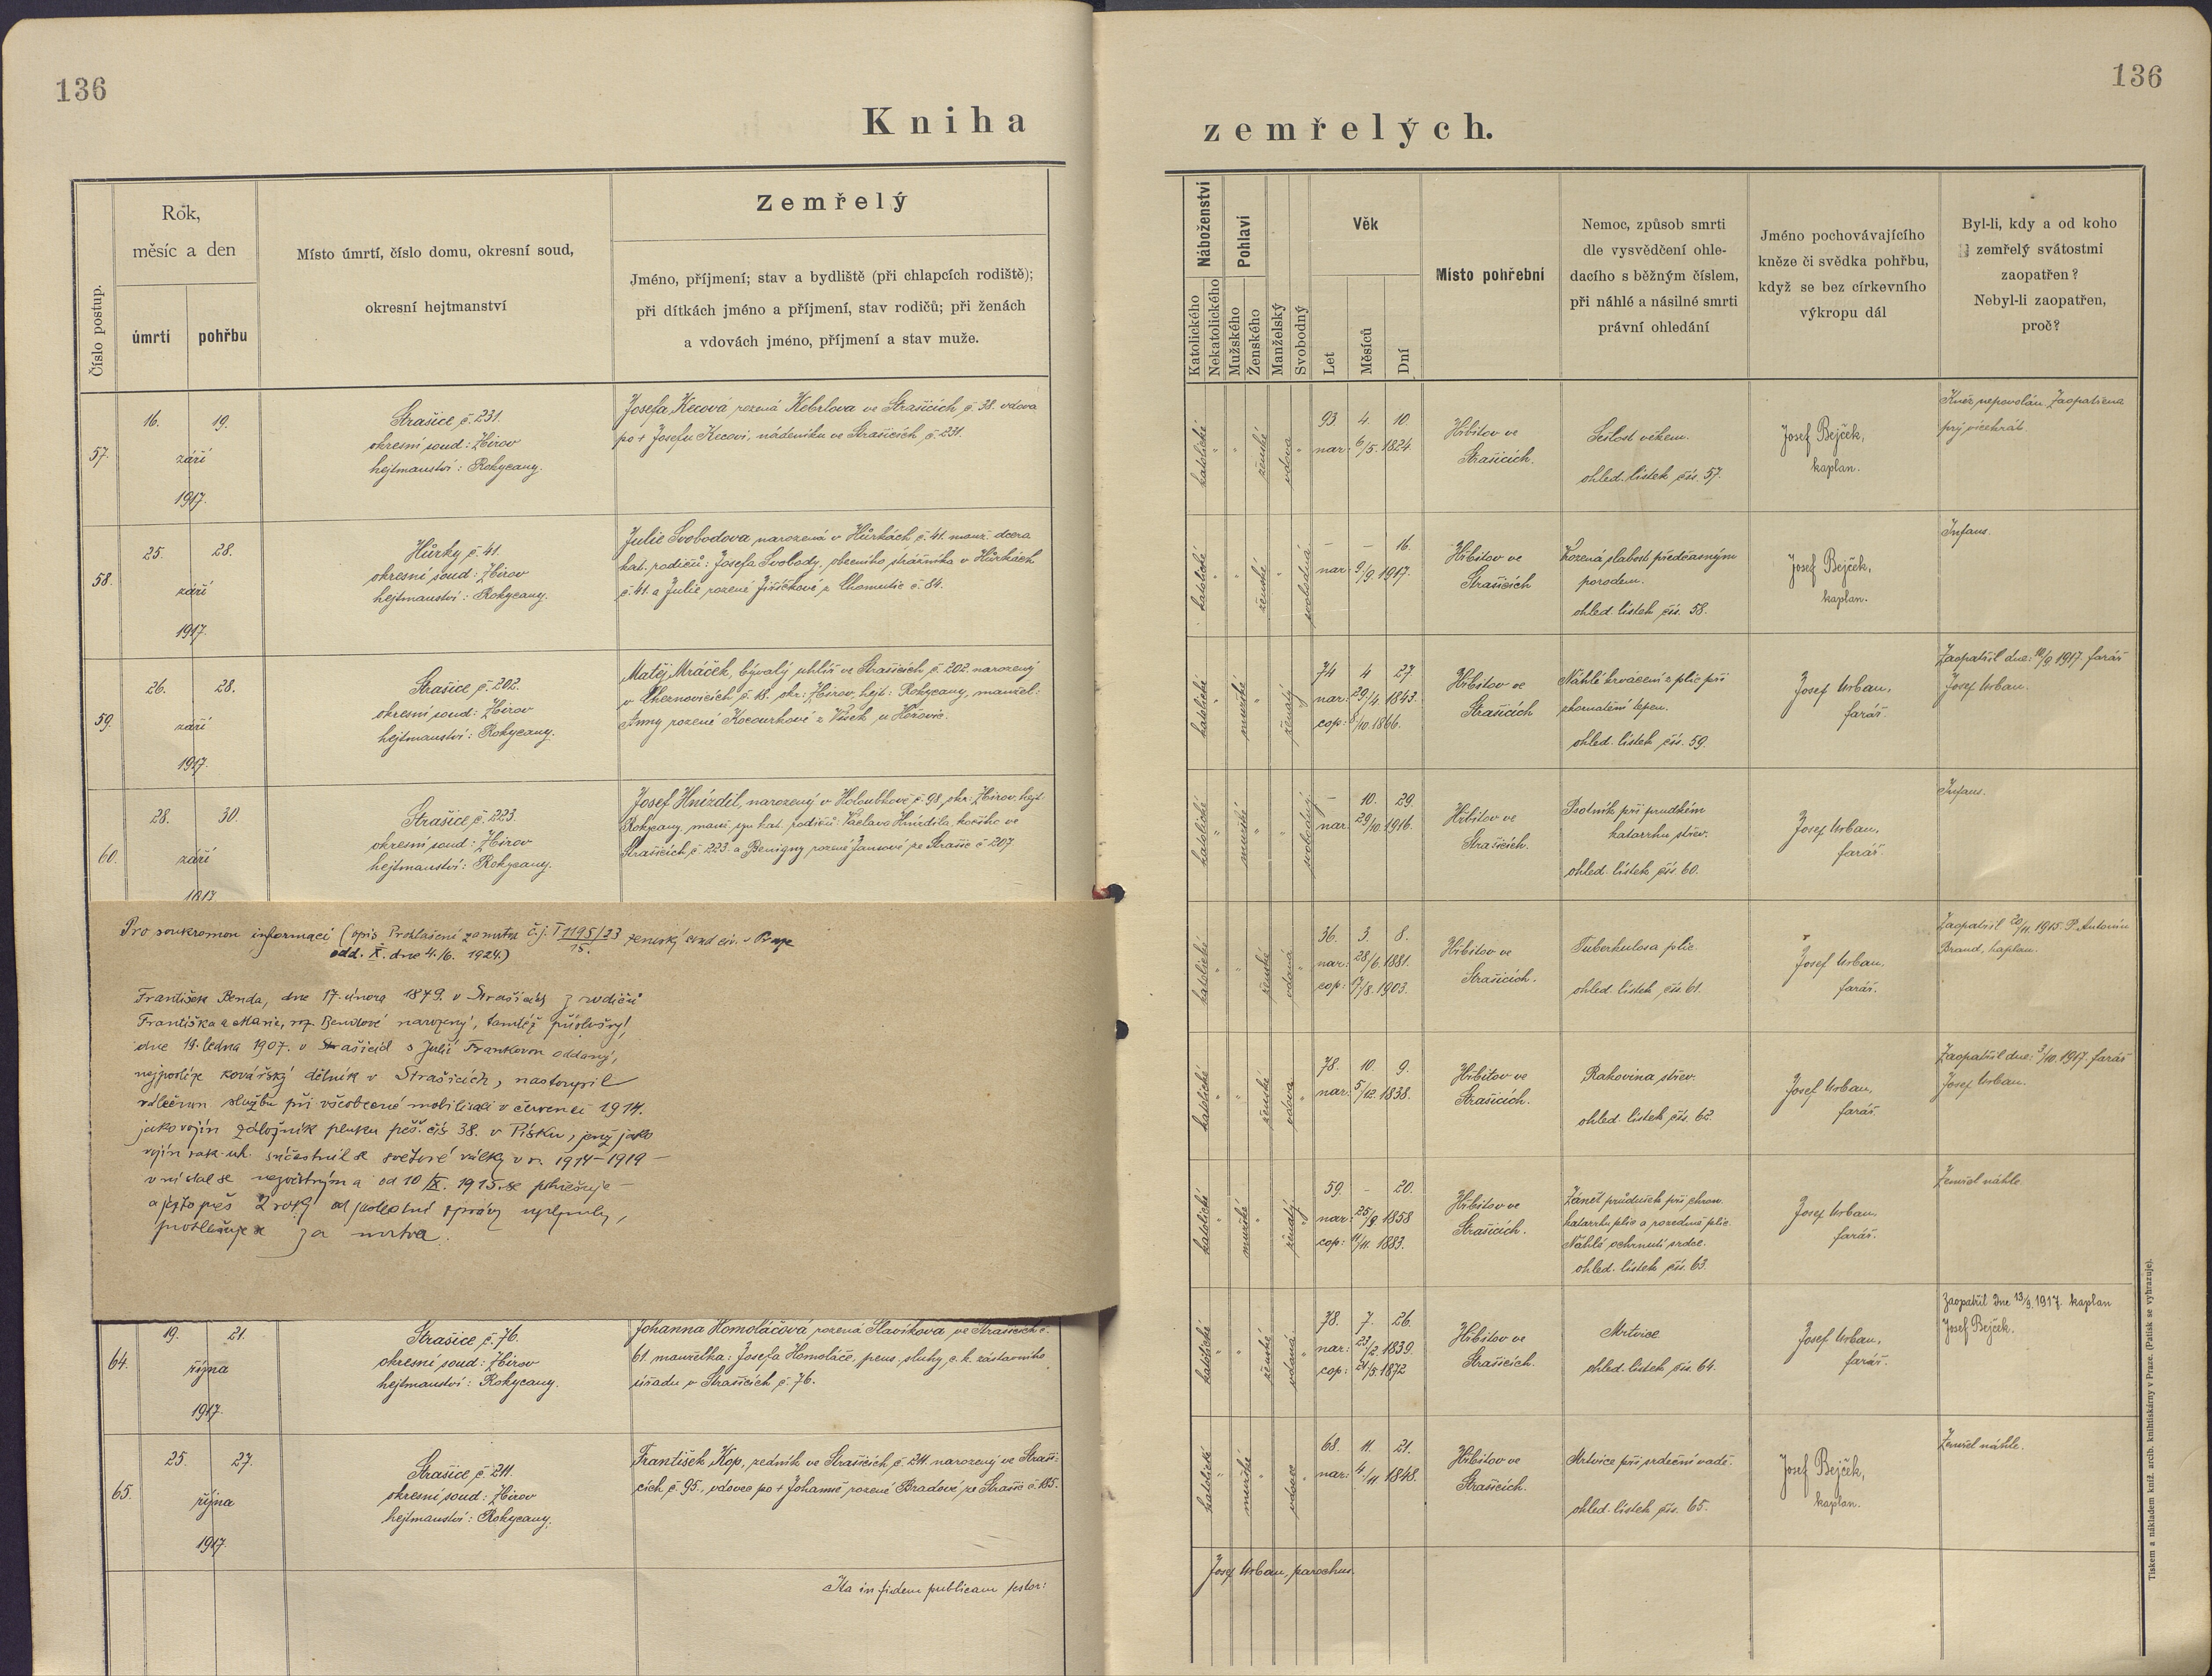 136
136
Kniha
zemřelých.
Číslo postup.
Rok,
měsíc a den
úmrtí
pohřbu
Místo úmrtí, číslo domu, okresní soud,
okresní hejtmanství
Zemřelý
Jméno, příjmení; stav a bydliště (při chlapcích rodiště);
při dítkách jméno a příjmení, stav rodičů; při ženách
a vdovách jméno, příjmení a stav muže.
57.
16. 19.
září
1917.
Strašice č. 231.
okresní soud: Zbirov
hejtmanství: Rokycany.
Josefa Kecová rozená Kebrlova ve Strašicích č. 38. vdova
po + Josefu Kecovi, nádeníku ve Strašicích č. 231.
58.
25. 28.
září
1917.
Hůrky č. 41.
okresní soud: Zbirov
hejtmanství: Rokycany.
Julie Svobodova narozená v Hůrkách č. 41. manž. dcera
kat. rodičů: Josefa Svobody, obecního strážníka v Hůrkách
č. 41. a Julie rozené Jiříčkové z Chomutic č. 84.
59.
26. 28.
září
1917.
Strašice č. 202.
okresní soud: Zbirov
hejtmanství: Rokycany.
Matěj Mráček, bývalý uhlíř ve Strašicích č. 202. narozený
v Chernovicích č. 18. okr.: Zbirov, hejt: Rokycany, manžel:
Anny rozené Kocourkové z Vísek u Hořovic.
60.
28. 30.
září
1917
Strašice č. 223.
okresní soud: Zbirov
hejtmanství: Rokycany.
Josef Hnízdil, narozený v Holoubkově č. 98, okr: Zbirov, hejt
Rokycany, manž. syn kat. rodičů: Václava Hnízdila, kočího ve
Strašicích č. 223. a Benigny rozené Jansové ze Strašic č. 207.
Pro soukromou informaci (opis Prohlášení za mrtva č. j. T 1195/23 zemský soud civ. v Praze
15.
odd. X. dne 4./6. 1924.)
František Benda, dne 17. února 1879. v Strašicích z rodičů
Františka a Marie, roz. Bendové narozený, tamtéž příslušný,
dne 19. ledna 1907. v Strašicích s Julií Frankovou oddaný,
nejposléze kovářský dělník v Strašicích, nastoupil
válečnou službu při všeobecné mobilisaci v červenci 1914.
jako vojín záložník pluku pěš. čís 38. v Písku, jenž jako
vojín rak.-uh. súčastnil se světové války v r. 1914–1919 –
v ní stal se nezvěstným a od 10/IX. 1915. se pohřešuje –
a ježto přes 2 roky od poslední zprávy uplynuly,
prohlašuje se za mrtva.
64.
19. 21.
října
1917.
Strašice č. 76.
okresní soud: Zbirov
hejtmanství: Rokycany.
Johanna Homoláčová rozená Slavíková, ve Strašicích č.
61. manželka: Josefa Homoláče, pens. sluhy c. k. zástavního
úřadu v Strašicích č. 76.
65.
25. 27.
října
1917.
Strašice č. 211.
okresní soud: Zbirov
hejtmanství: Rokycany.
František Kop, zedník ve Strašicích č. 211. narozený ve Straši-
cích č. 95., vdovec po + Johanně rozené Bradové ze Strašic č. 185.
Ita in fidem publicam testor:
Náboženství
Katolického
Nekatolického
Pohlaví
Mužského
Ženského
Manželský
Svobodný
Věk
Let
Měsíců
Dní
Místo pohřební
Nemoc, způsob smrti
dle vysvědčení ohle-
dacího s běžným číslem,
při náhlé a násilné smrti
právní ohledání
Jméno pochovávajícího
kněze či svědka pohřbu,
když se bez církevního
výkropu dál
Byl-li, kdy a od koho
zemřelý svátostmi
zaopatřen?
Nebyl-li zaopatřen,
proč?
katolické " " ženské vdova "
93. 4. 10.
nar: 6/5. 1824.
Hřbitov ve
Strašicích.
Sešlost věkem.
ohled. lístek čís. 57.
Josef Bejček,
kaplan.
Kněz nepovolán. Zaopatřena
prý vícekrát.
katolické " " ženské " svobodná
– – 16.
nar: 9/9. 1917.
Hřbitov ve
Strašicích
Vrozená slabost předčasným
porodem.
ohled. lístek čís. 58.
Josef Bejček,
kaplan.
Infans.
katolické " mužské " ženatý "
74 4 27.
nar: 29/4. 1843.
cop: 8/10. 1866.
Hřbitov ve
Strašicích
Náhlé krvácení z plic při
zkornatění tepen.
ohled. lístek čís. 59.
Josef Urban,
farář.
Zaopatřil dne: 10/9. 1917. farář
Josef Urban.
katolické " mužské " " svobodný
– 10. 29.
nar: 29/10. 1916.
Hřbitov ve
Strašicích.
Psotník při prudkém
katarrhu střev.
ohled. lístek čís. 60.
Josef Urban,
farář.
Infans.
katolické " " ženské vdaná "
36. 3. 8.
nar: 28/6. 1881.
cop: 9/8. 1903.
Hřbitov ve
Strašicích.
Tuberkulosa plic.
ohled. lístek čís. 61.
Josef Urban,
farář.
Zaopatřil 20/11. 1915. P. Antonín
Brand, kaplan.
katolické " " ženské vdova "
78. 10. 9.
nar: 5/12. 1838.
Hřbitov ve
Strašicích.
Rakovina střev.
ohled. lístek čís. 62.
Josef Urban,
farář.
Zaopatřil dne: 3/10. 1917. farář
Josef Urban.
katolické " mužské " ženatý "
59. – 20.
nar: 25/9. 1858
cop: 11/11. 1883.
Hřbitov ve
Strašicích.
Zánět průdušek při chron.
katarrhu plic a rozedmě plic.
Náhlé ochrnutí srdce.
ohled. lístek čís. 63.
Josef Urban,
farář.
Zemřel náhle.
katolické " " ženské vdaná "
78. 7. 26.
nar: 23/2. 1839.
cop: 21/5. 1872
Hřbitov ve
Strašicích.
Mrtvice
ohled. lístek čís. 64.
Josef Urban,
farář.
Zaopatřil dne 13/9. 1917. kaplan
Josef Bejček.
katolické " mužské " vdovec "
68. 11. 21.
nar: 4/11 1848.
Hřbitov ve
Strašicích.
Mrtvice při srdeční vadě.
ohled. lístek čís. 65.
Josef Bejček,
kaplan.
Zemřel náhle.
Josef Urban, parochus.
Tiskem a nákladem kníž. arcib. knihtiskárny v Praze. (Patisk se vyhrazuje).